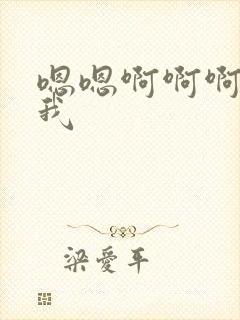 嗯嗯啊啊啊
我
梁爱平